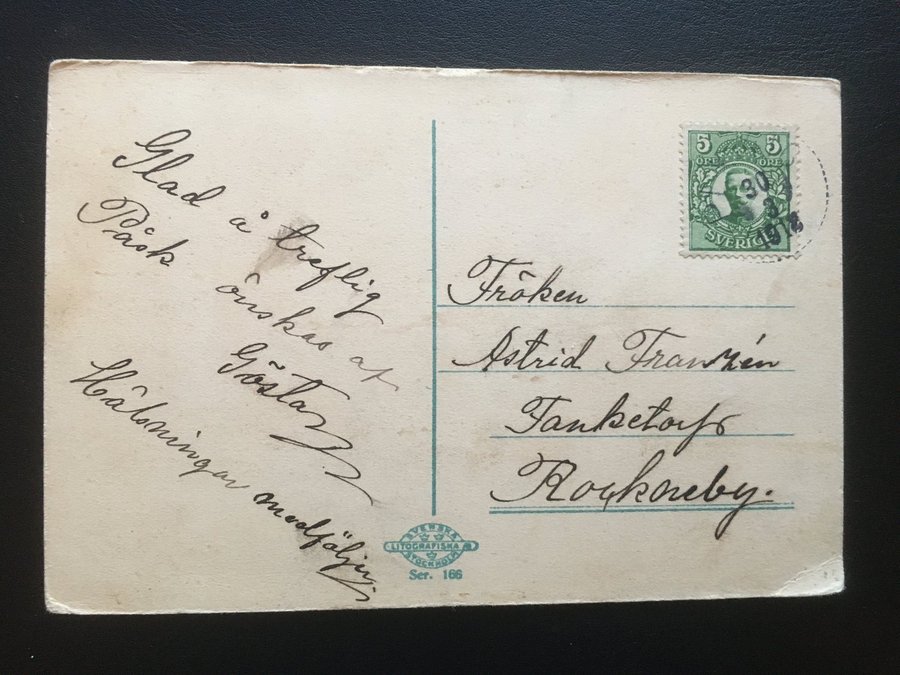 Glad å treflig
Påsk
önskas af
Gösta
Hälsningar medföljer
5 5
ÖRE ÖRE
SVERIGE
30
3
Fröken
Astrid Franzén
Rockneby.
SVENSKA
LITOGRAFISKA
STOCKHOLM
Ser. 166